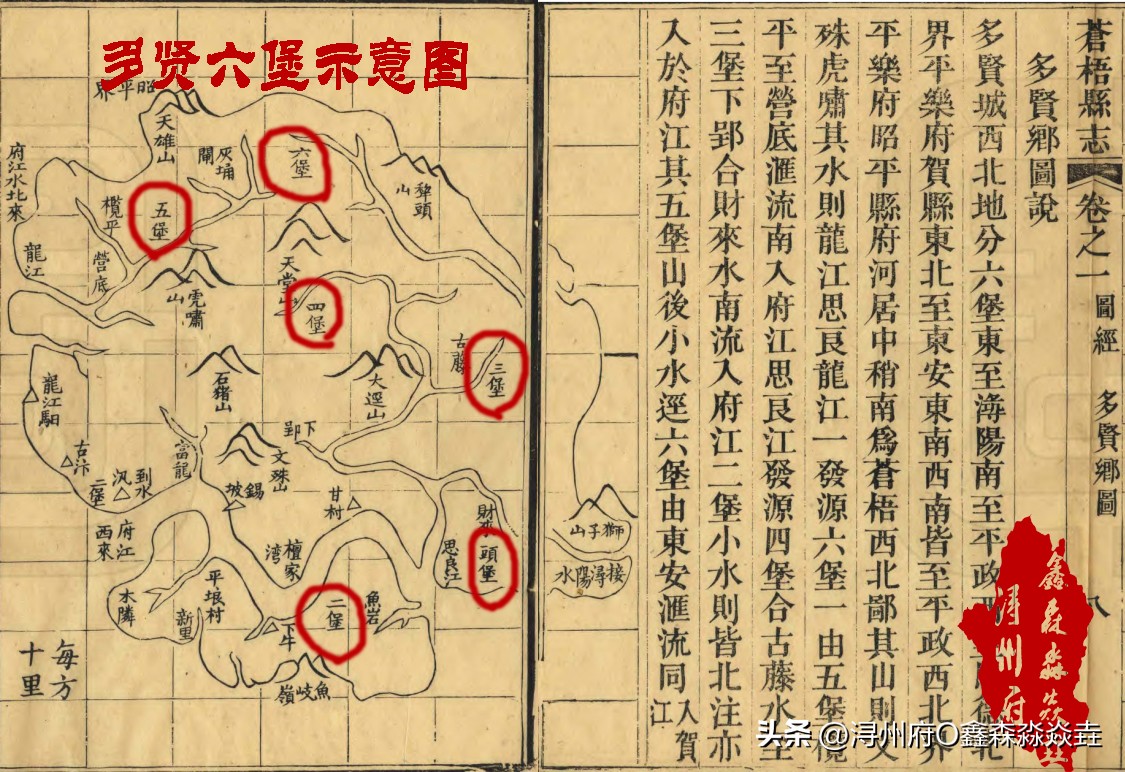 多贤六堡示意图
蒼梧縣志 卷之一 圖經 多賢鄉圖 八
多賢鄉圖說
多賢城西北地分六堡東至潯陽南至平政西
北
界平樂府賀縣東北至東安東南西南皆至平政西北界
平樂府昭平縣府河居中稍南爲蒼梧西北鄙其山則文
殊虎嘯其水則龍江思良龍江一發源六堡一由五堡欖
平至營底滙流南入府江思良江發源四堡合古藤水至
三堡下郢合財來水南流入府江二堡小水則皆北注亦
入於府江其五堡山後小水逕六堡由東安滙流同入賀江
接潯陽水
獅子山
昭平界
天雄山
灰埇閘
六堡
犂頭山
府江水北來
欖平
五堡
龍江
營底
虎嘯山
天堂山
四堡
古藤
三堡
石豬山
大逕山
龍江馹
下郢
古汴
二堡
汛
到水
富龍
文殊山
錫坡
甘村
財來
頭堡
思良江
府江西來
檀家湾
木隣
平垠村
新里
下牛
二堡
魚岩
魚岐嶺
每方十里
鑫森淼焱垚
浔州府
头条 @浔州府O鑫森淼焱垚